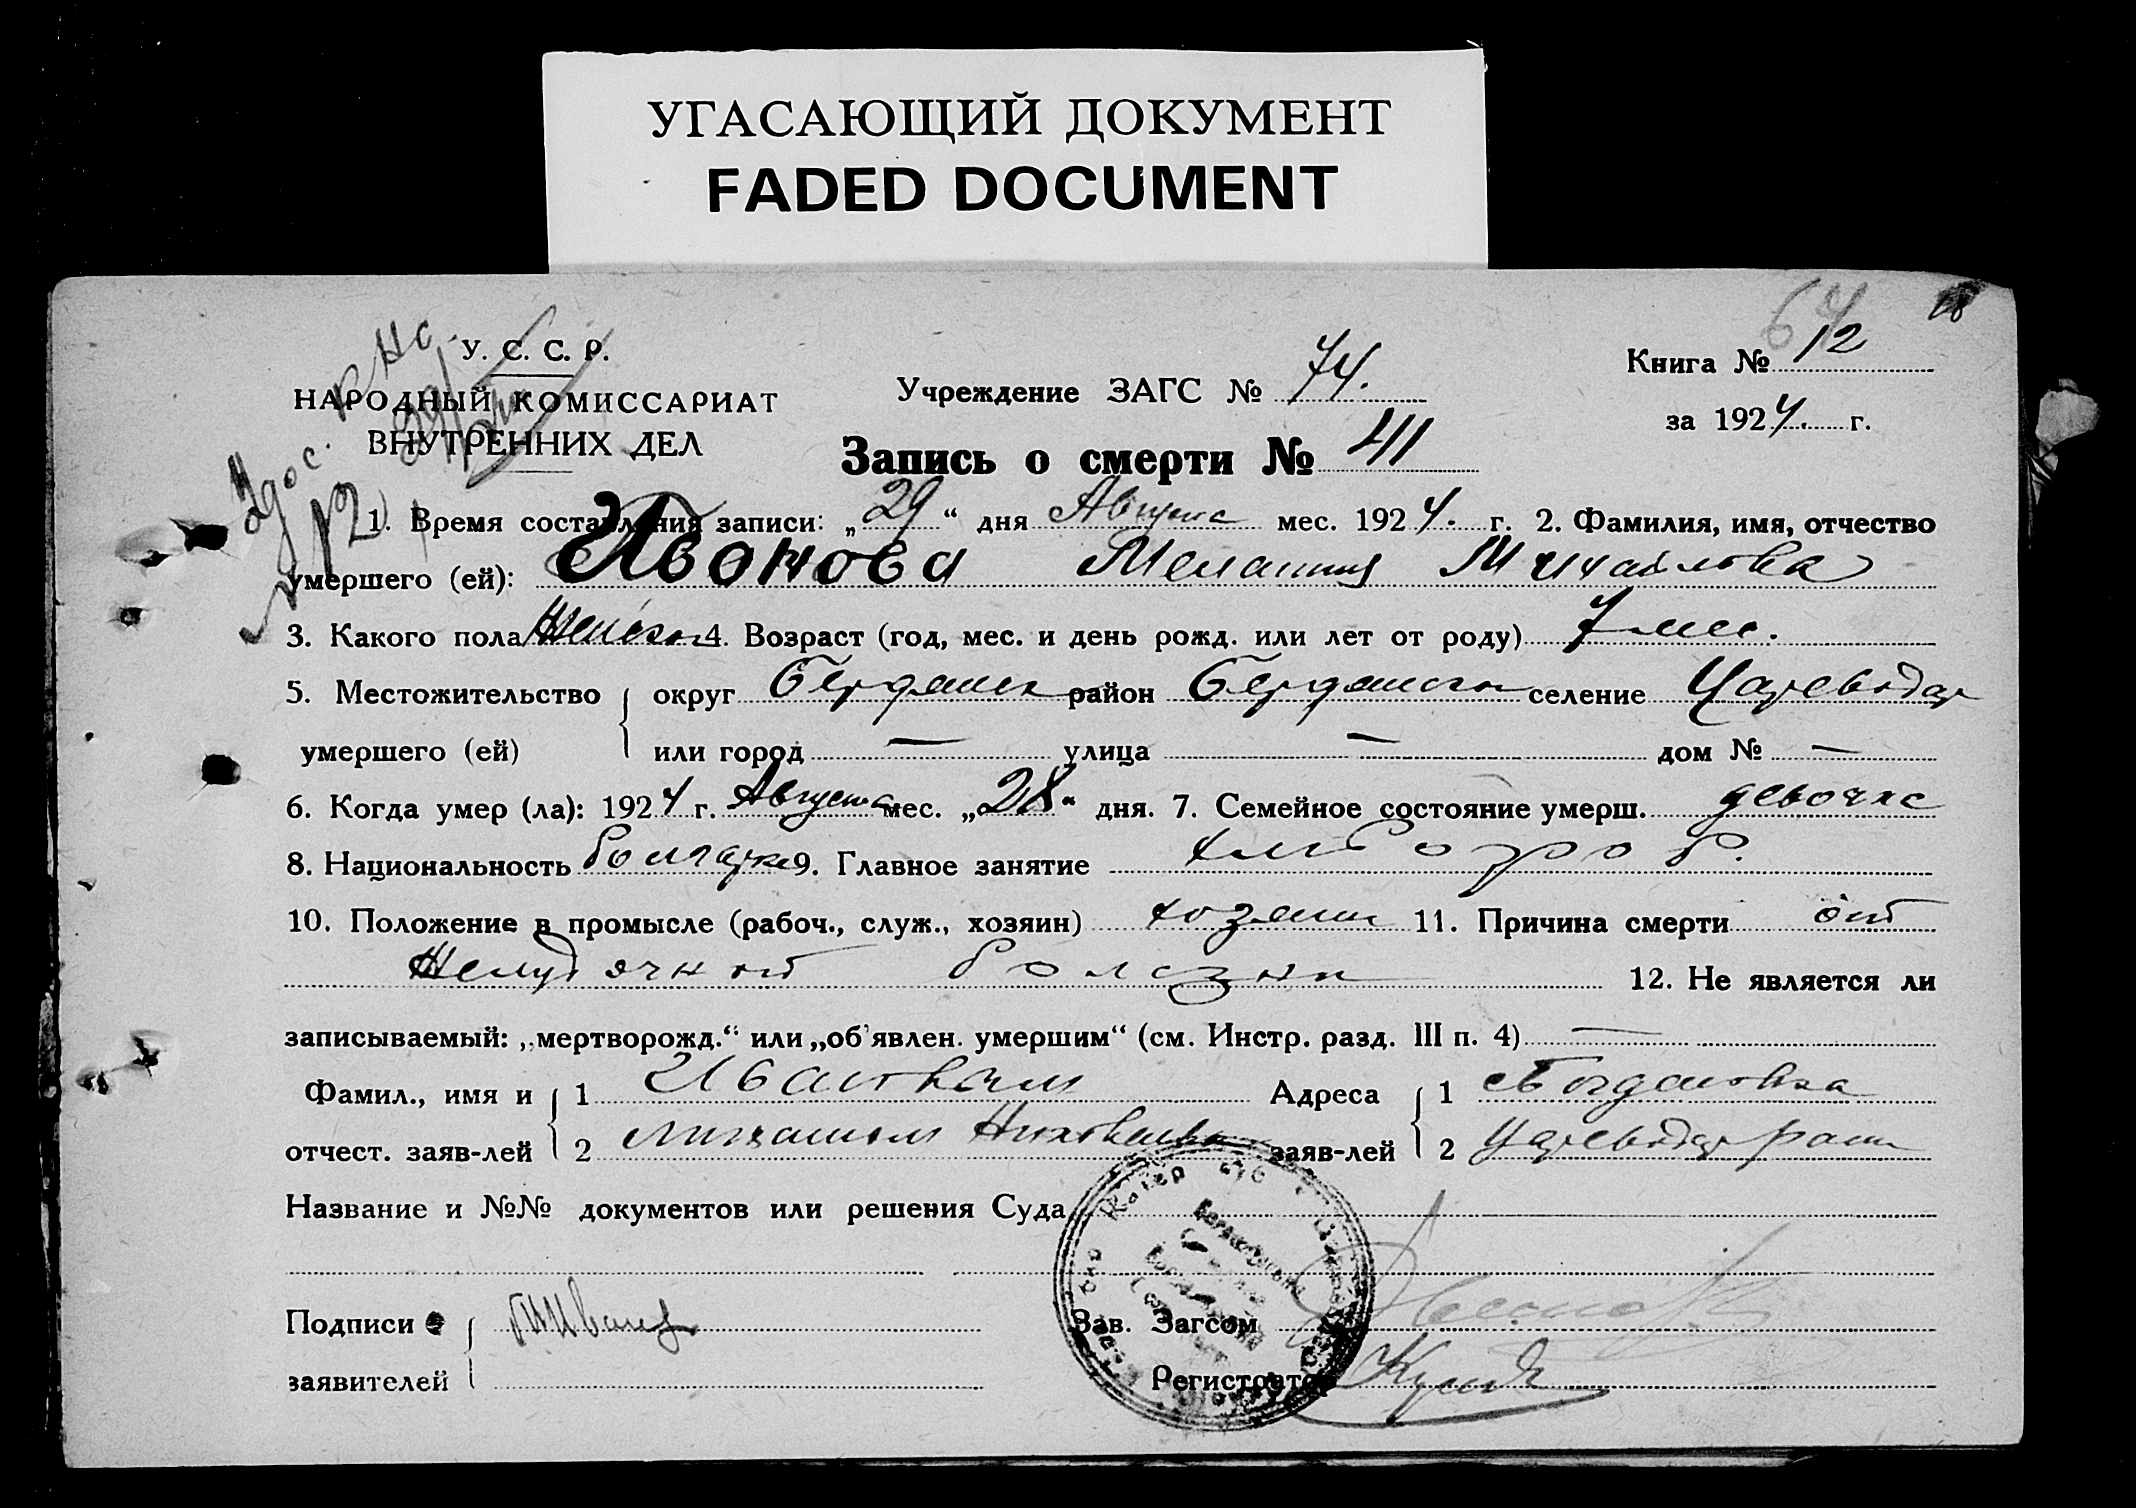 УГАСАЮЩИЙ ДОКУМЕНТ
FADED DOCUMENT
64
У. С. С. Р.
НАРОДНЫЙ КОМИССАРИАТ
ВНУТРЕННИХ ДЕЛ
Учреждение ЗАГС № 74.
Книга № 12
за 1924. г.
Запись о смерти № 411
1. Время составления записи: „29“ дня Августа мес. 1924. г. 2. Фамилия, имя, отчество
умершего (ей): Ивонова Мелания Михайловна
3. Какого пола Женског 4. Возраст (год, мес. и день рожд. или лет от роду) 7 мес.
5. Местожительство округ Бердянск район Бердянск селение Цареводар
умершего (ей) или город — улица — дом № —
6. Когда умер (ла): 1924 г. Августа мес. „28“ дня. 7. Семейное состояние умерш. девочка
8. Национальность болгарка 9. Главное занятие хлебороб.
10. Положение в промысле (рабоч., служ., хозяин) хозяин 11. Причина смерти от
Желудочной болезни 12. Не является ли
записываемый: „мертворожд.“ или „об'явлен. умершим“ (см. Инстр. разд. III п. 4) —
Фамил., имя и 1 Ивановым Адреса 1 Богдановка
отчест. заяв-лей 2 Михаилом заяв-лей 2 Цареводар
Название и №№ документов или решения Суда
Подписи Зав. Загсом
заявителей Регистратор